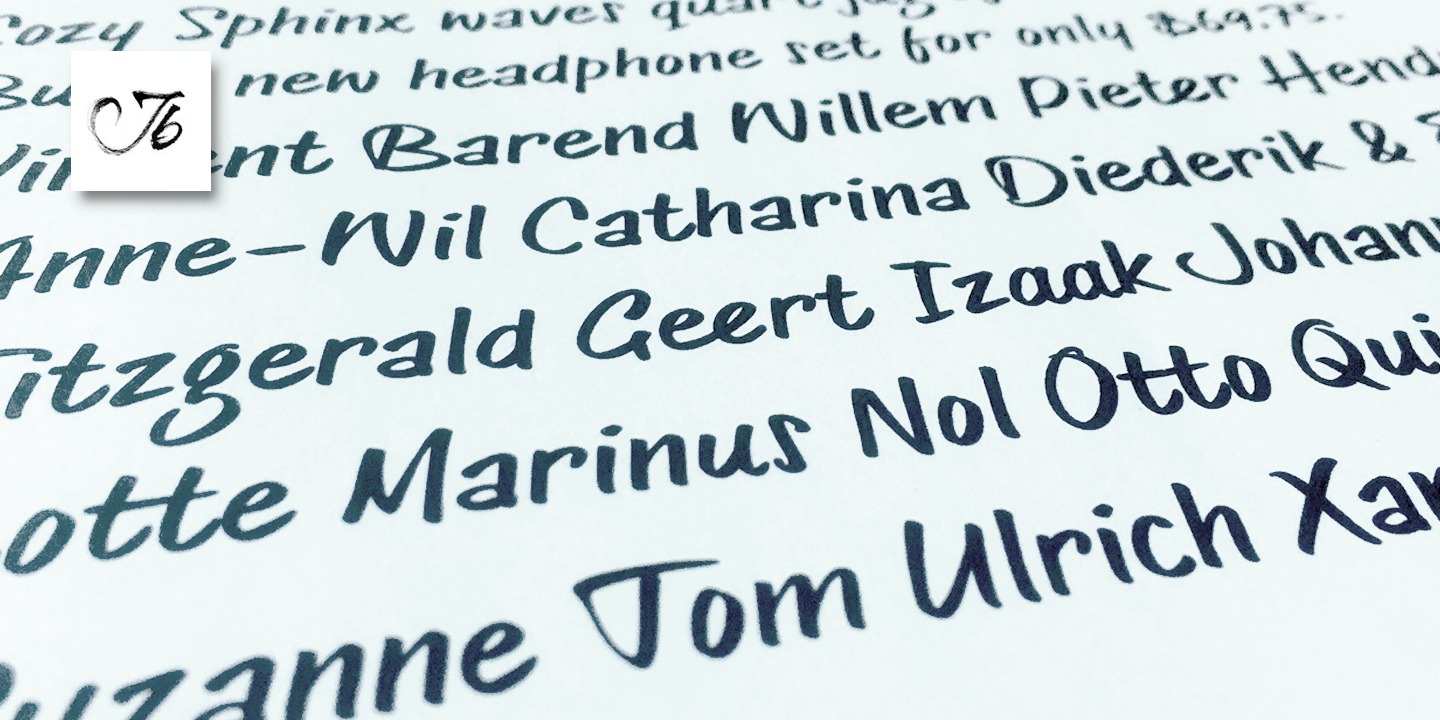 Cozy Sphinx waves quart jug
Bu new headphone set for only $69.75.
Vincent Barend Willem Pieter Hend
Anne-Wil Catharina Diederik &
Fitzgerald Geert Izaak Johann
Lotte Marinus Nol Otto Qui
Suzanne Tom Ulrich Xan
Jb